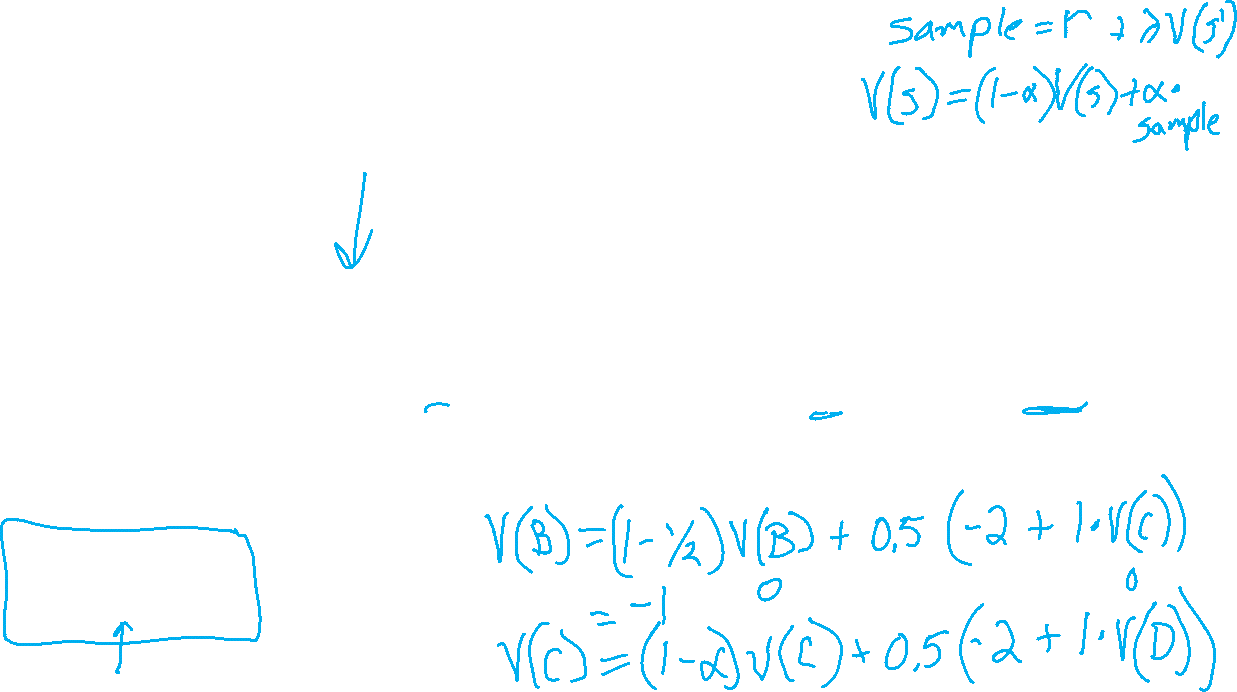 sample = r + λV(s')
V(s) = (1-α)V(s) + α·
sample
V(B) = (1 - 1/2) V(B) + 0.5 (-2 + 1·V(C))
0 0
= -1
V(C) = (1-α) V(C) + 0.5 (-2 + 1·V(D))